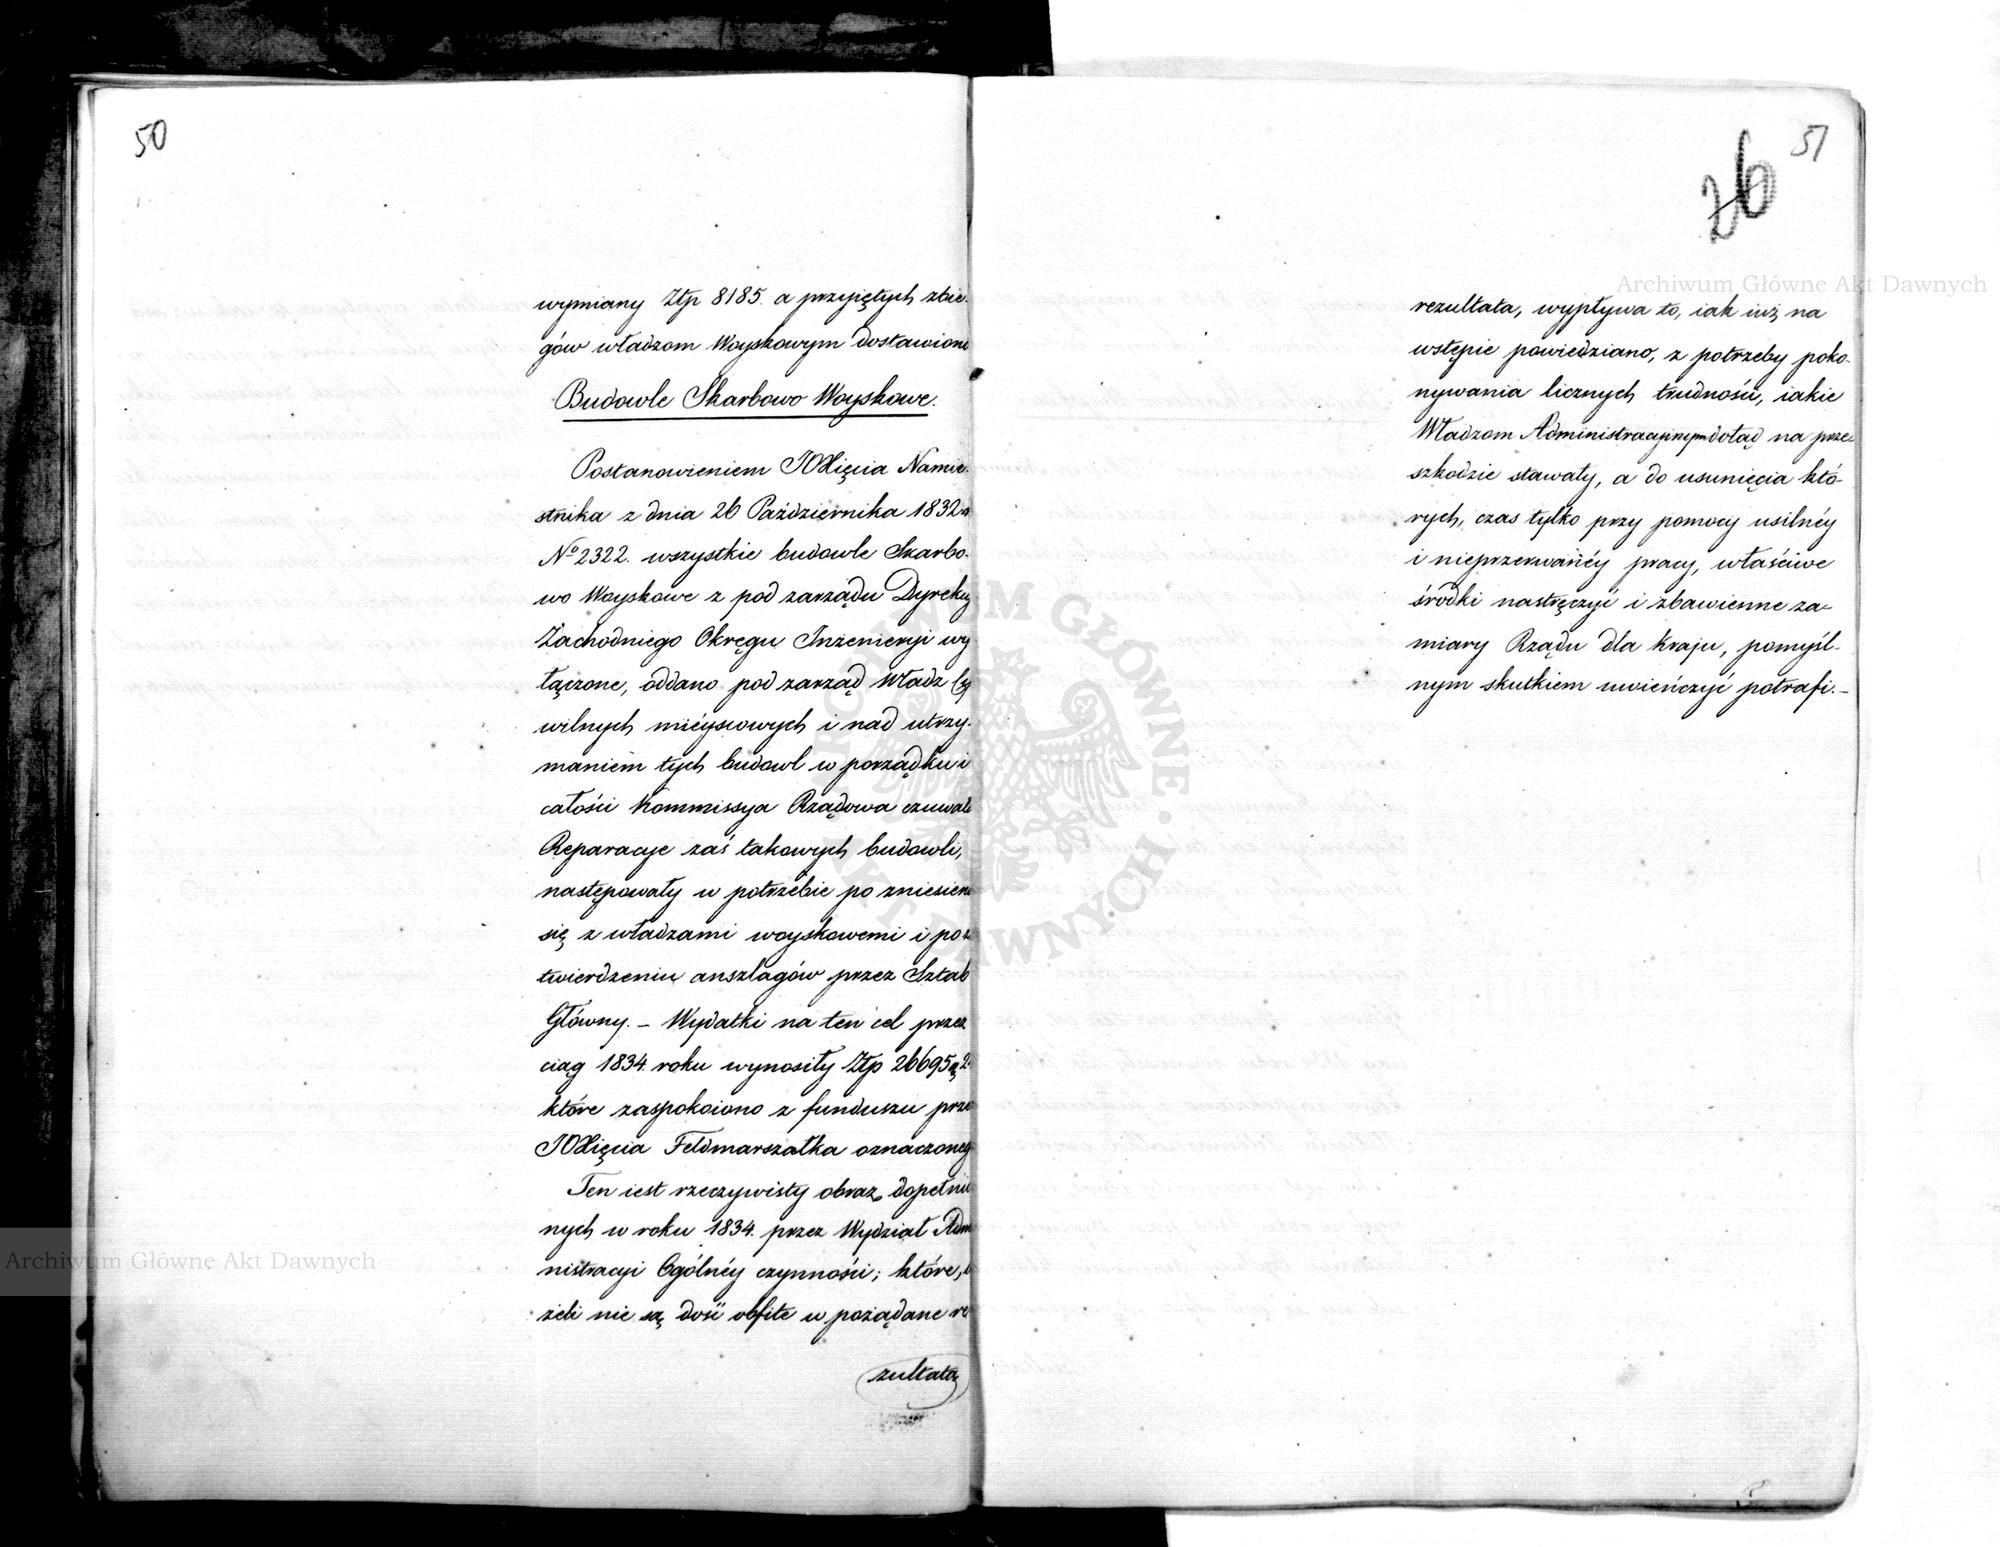 50
wymiany Złp 8185. a przyiętych zbie-
gów władzom Woyskowym dostawiono
Budowle Skarbowo Woyskowe.
Postanowieniem JOXięcia Namie-
stnika z dnia 26 Października 1832 r
No 2322. wszystkie budowle Skarbo-
wo Woyskowe z pod zarządu Dyrekcyi
Zachodniego Okręgu Inżenieryi wy
łączone, oddano pod zarząd Władz Cy
wilnych mieyscowych i nad utrzy-
maniem tych budowl w porządku i
całości Kommissya Rządowa czuwała
Reparacye zaś takowych budowli,
następowały w potrzebie po zniesieniu
się z władzami woyskowemi i po za
twierdzeniu anszlagów przez Sztab
Główny. – Wydatki na ten cel przez
ciąg 1834 roku wynosiły Złp 26695
które zaspokoiono z funduszu przez
JOXięcia Feldmarszałka oznaczonego
Ten iest rzeczywisty obraz dopełnio
nych w roku 1834. przez Wydział Adm
nistracyi Ogólnéy czynności; które,
żeli nie są dość obfite w pożądane re
zultata
51
26
rezultata, wypływa to, iak iuż na
wstępie powiedziano, z potrzeby poko-
nywania licznych trudności, iakie
Władzom Administracyinym dotąd na prze-
szkodzie stawały, a do usunięcia któ-
rych, czas tylko przy pomocy usilnéy
i nieprzerwanéy pracy, właściwe
środki nastręczyć i zbawienne za-
miary Rządu dla kraju, pomyśl-
nym skutkiem uwieńczyć potrafi. –
Archiwum Główne Akt Dawnych
Archiwum Główne Akt Dawnych
ARCHIWUM GŁÓWNE AKT DAWNYCH